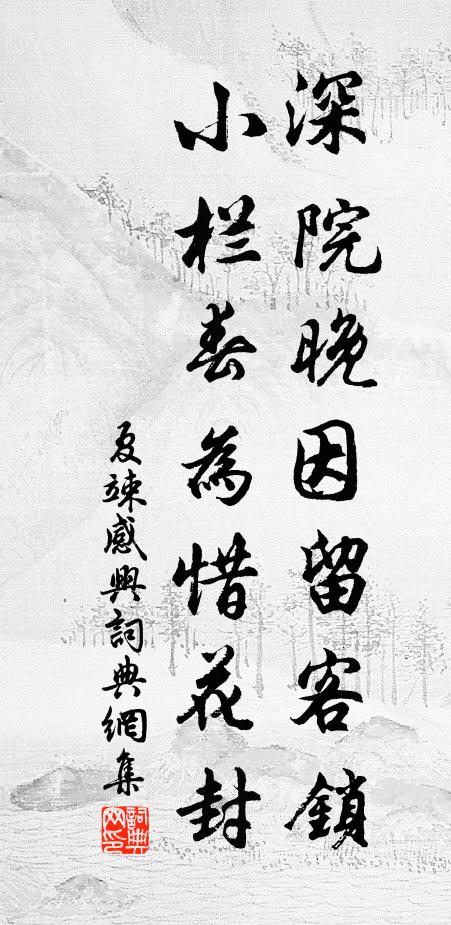 深院晚因留客鎖
小栏春為惜花封
夏竦感興詞典網集
詞典
网印